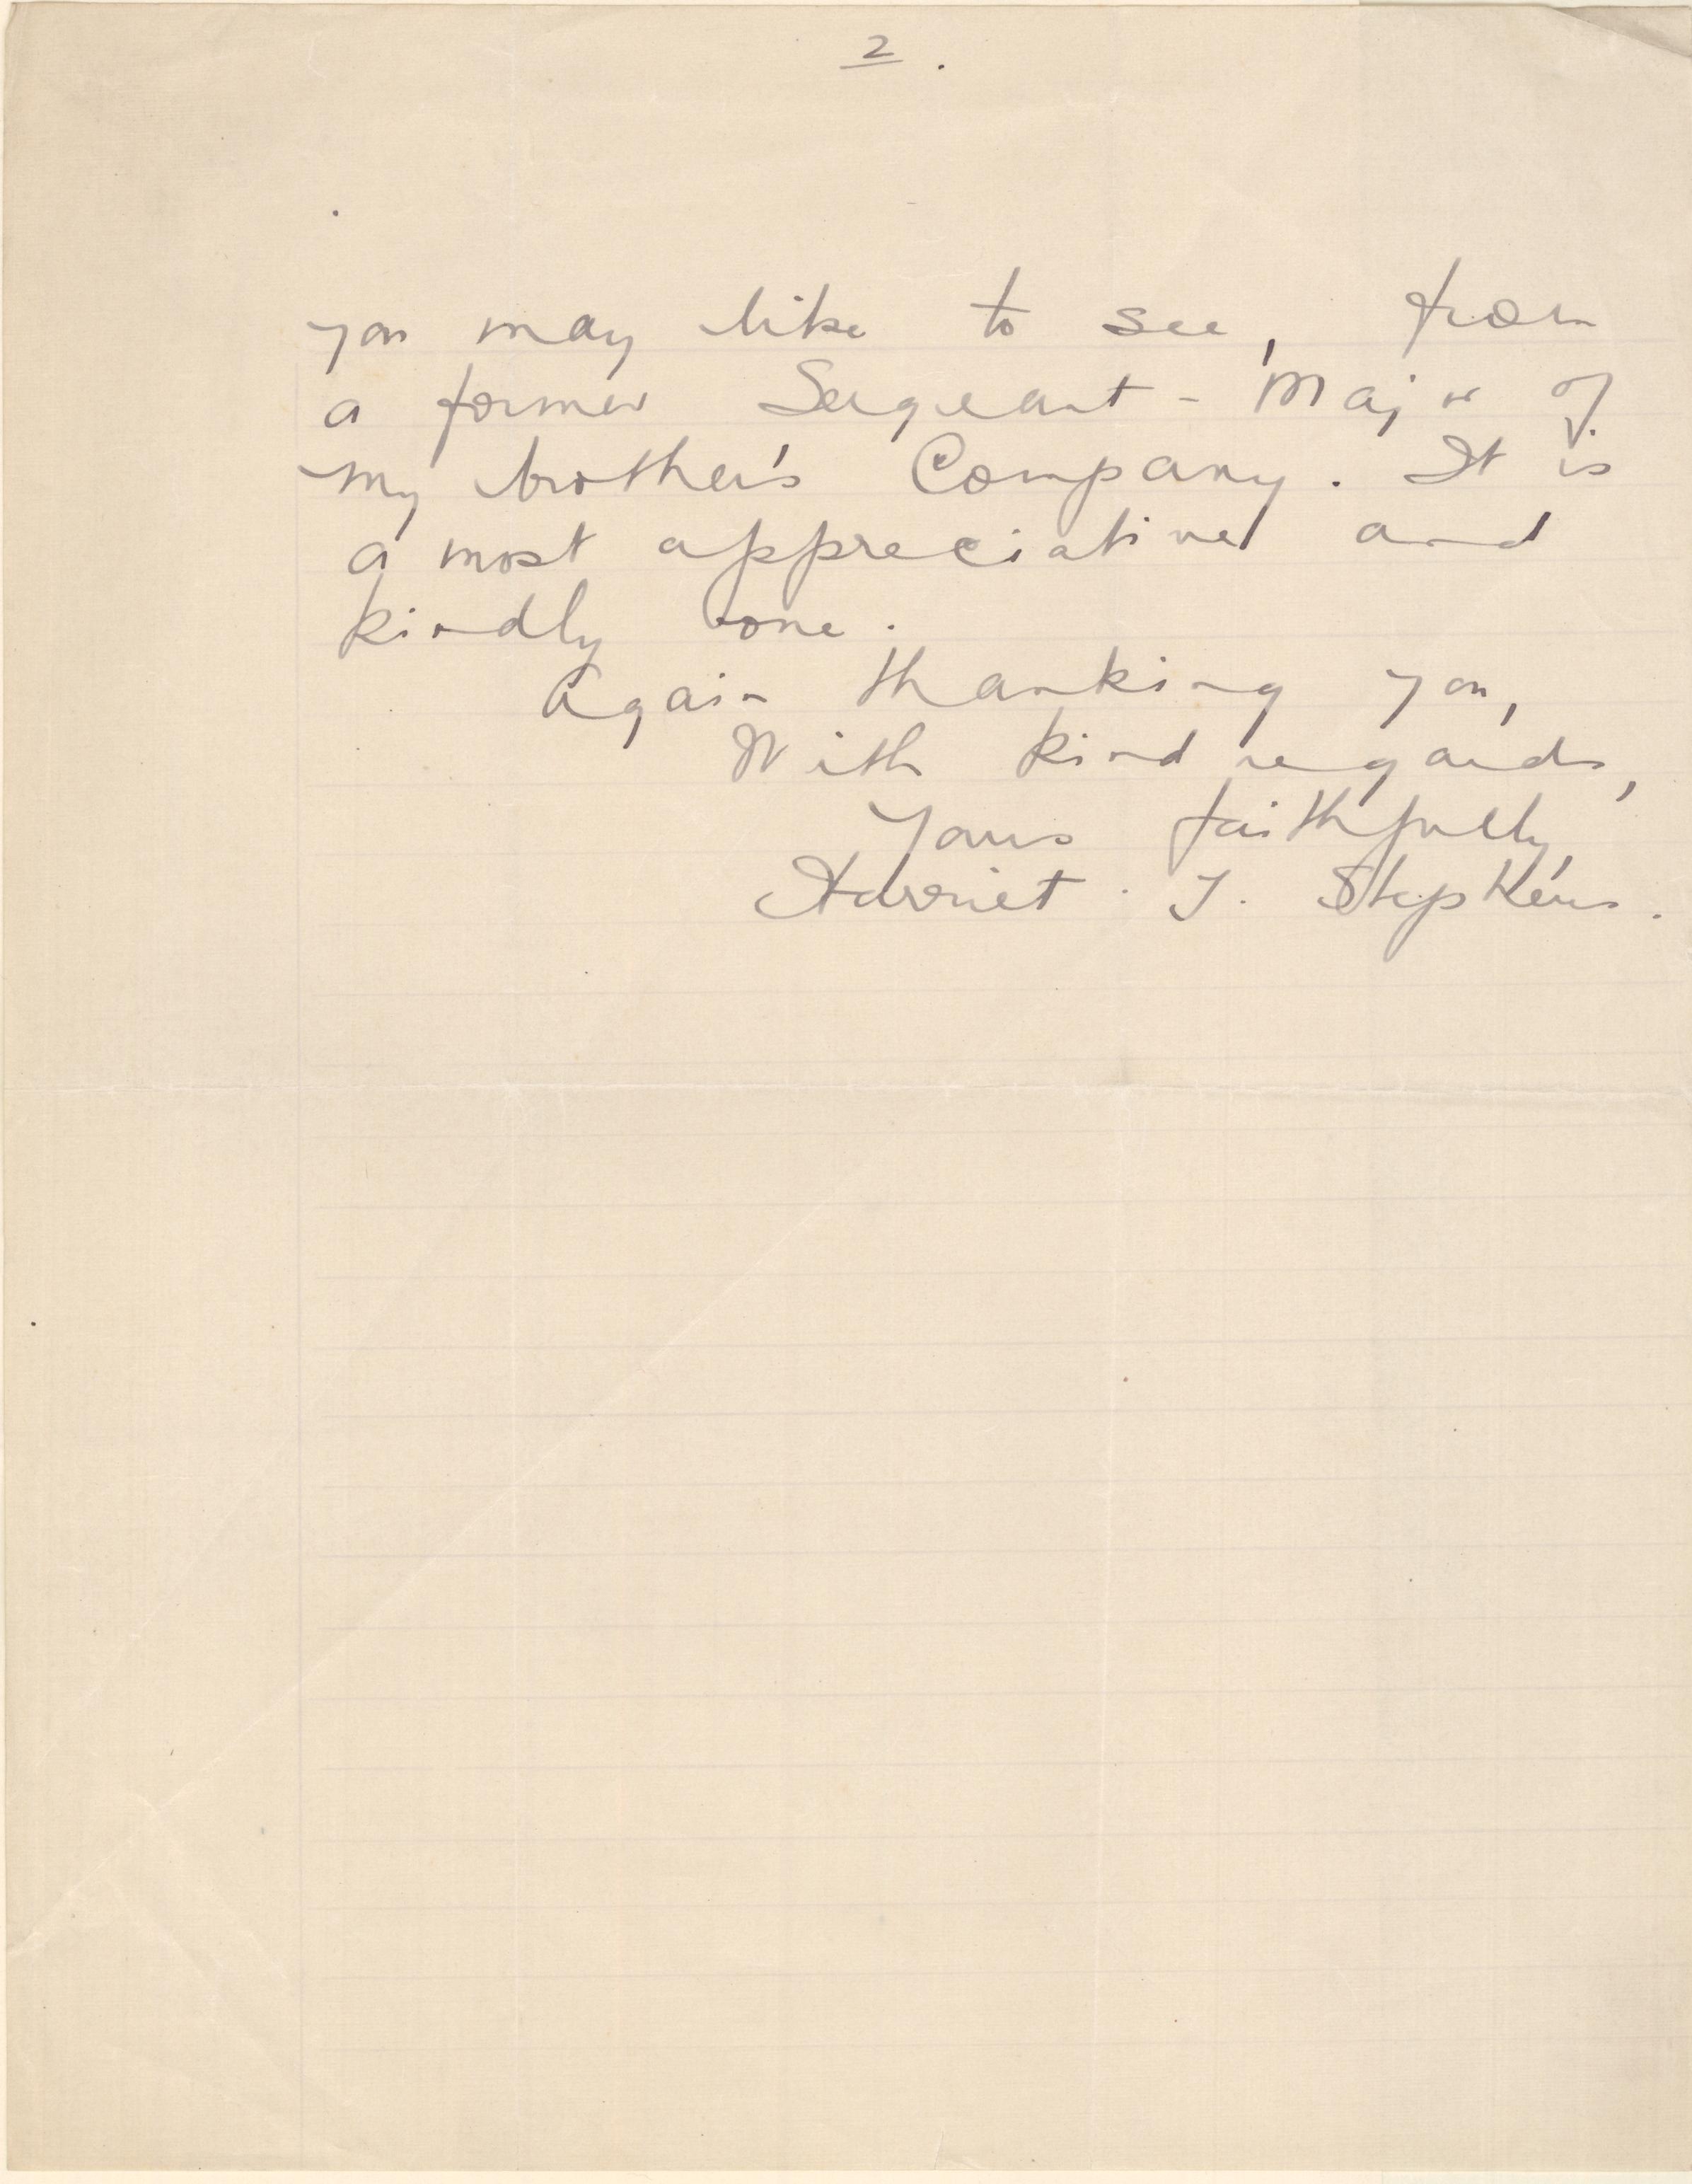 2.
you may like to see, from
a former Sergeant - Major of
my brother's Company. It is
a most appreciative and
kindly one.
Again thanking you,
With kind regards,
Yours faithfully,
Harriet. J. Stephens.